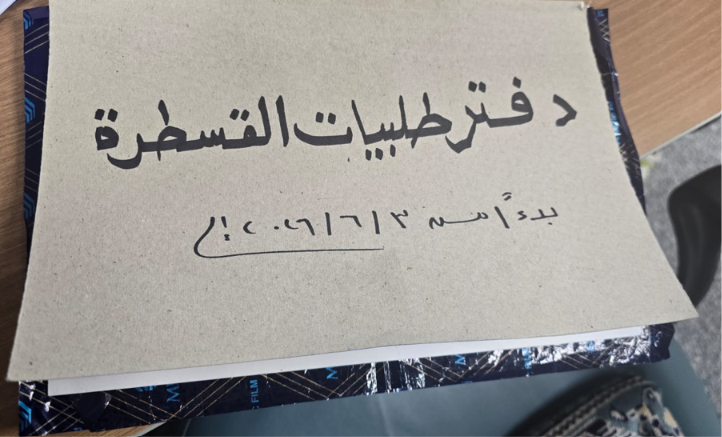 دفتر طلبيات القسطرة
بدءاً من ٣/٦/٢٠٢٦ إلى
FILM